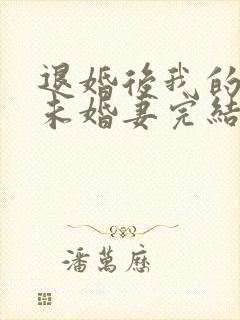 退婚後我的
未婚妻完結
潘萬曆